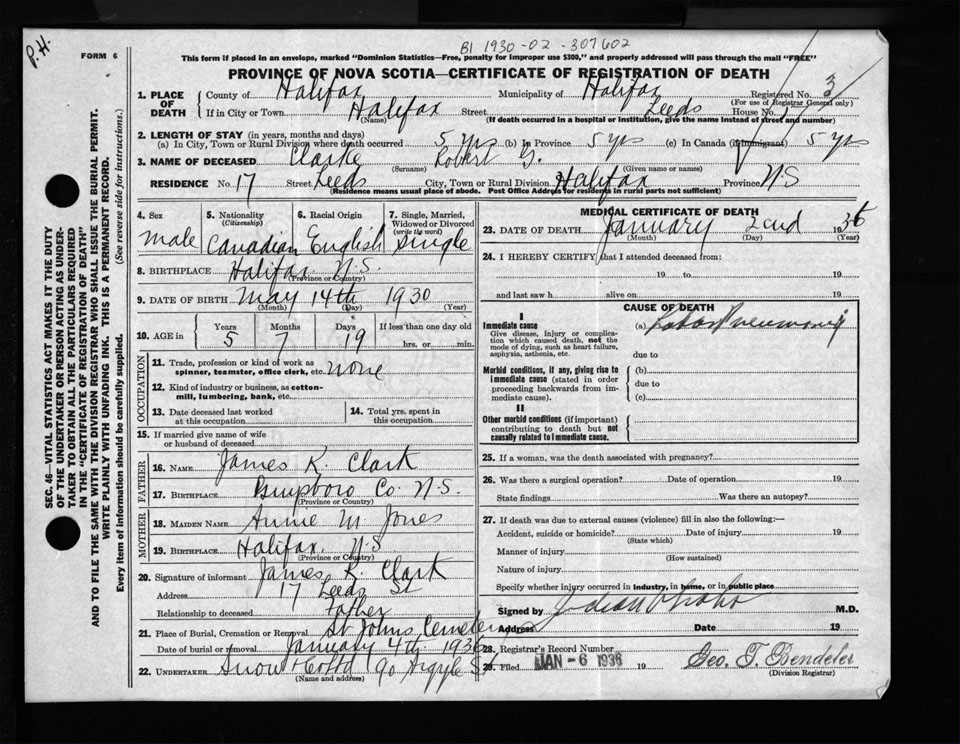 P.H.
B1 1930-02-307602
FORM 6
This form if placed in an envelope, marked "Dominion Statistics—Free, penalty for improper use $300," and properly addressed will pass through the mail "FREE"
PROVINCE OF NOVA SCOTIA—CERTIFICATE OF REGISTRATION OF DEATH
SEC. 46—VITAL STATISTICS ACT MAKES IT THE DUTY
OF THE UNDERTAKER OR PERSON ACTING AS UNDER-
TAKER TO OBTAIN ALL THE PARTICULARS REQUIRED
IN THE "CERTIFICATE OF REGISTRATION OF DEATH"
AND TO FILE THE SAME WITH THE DIVISION REGISTRAR WHO SHALL ISSUE THE BURIAL PERMIT.
WRITE PLAINLY WITH UNFADING INK. THIS IS A PERMANENT RECORD.
Every item of information should be carefully supplied. (See reverse side for instructions.)
1. PLACE OF DEATH County of Halifax Municipality of Halifax Registered No. 3
(For use of Registrar General only)
If in City or Town Halifax Street Leeds House No. 17
(Name) (If death occurred in a hospital or institution, give the name instead of street and number)
2. LENGTH OF STAY (in years, months and days)
(a) In City, Town or Rural Division where death occurred 5 yrs (b) In Province 5 yrs (c) In Canada (if immigrant) 5 yrs
3. NAME OF DECEASED Clarke Robert
(Surname) (Given name or names)
RESIDENCE No. 17 Street Leeds City, Town or Rural Division Halifax Province NS
(Residence means usual place of abode. Post Office Address for residents in rural parts not sufficient)
4. Sex 5. Nationality (Citizenship) 6. Racial Origin 7. Single, Married, Widowed or Divorced (write the word)
Male Canadian English Single
8. BIRTHPLACE Halifax N.S.
(Province or Country)
9. DATE OF BIRTH May 14th 1930
(Month) (Day) (Year)
10. AGE in Years Months Days If less than one day old
5 7 19 hrs. or min.
OCCUPATION
11. Trade, profession or kind of work as spinner, teamster, office clerk, etc. None
12. Kind of industry or business, as cotton-mill, lumbering, bank, etc.
13. Date deceased last worked at this occupation
14. Total yrs. spent in this occupation
15. If married give name of wife or husband of deceased
FATHER
16. NAME James K. Clark
17. BIRTHPLACE Guysboro Co. N.S.
(Province or Country)
MOTHER
18. MAIDEN NAME Annie M. Jones
19. BIRTHPLACE Halifax N.S
(Province or Country)
20. Signature of informant James K. Clark
Address 17 Leeds St
Relationship to deceased Father
21. Place of Burial, Cremation or Removal St Johns Cemetery
Date of burial or removal January 4th 1936
22. UNDERTAKER Snow & Co Ltd 90 Argyle S
(Name and address)
MEDICAL CERTIFICATE OF DEATH
23. DATE OF DEATH January 2nd 1936
(Month) (Day) (Year)
24. I HEREBY CERTIFY that I attended deceased from:
19 to 19
and last saw h alive on 19
CAUSE OF DEATH
I
Immediate cause (a) Lobar Pneumonia
Give disease, injury or complication which caused death, not the mode of dying, such as heart failure, asphyxia, asthenia, etc.
due to
Morbid conditions, if any, giving rise to immediate cause (stated in order proceeding backwards from immediate cause).
(b)
due to
(c)
II
Other morbid conditions (if important) contributing to death but not causally related to immediate cause.
25. If a woman, was the death associated with pregnancy?
26. Was there a surgical operation? Date of operation 19
State findings Was there an autopsy?
27. If death was due to external causes (violence) fill in also the following:—
Accident, suicide or homicide? Date of injury 19
(State which)
Manner of injury
(How sustained)
Nature of injury
Specify whether injury occurred in industry, in home, or in public place
Signed by M.D.
Address Date 19
28. Registrar's Record Number
29. Filed JAN -6 1936 19 Geo. T. Bendeler
(Division Registrar)